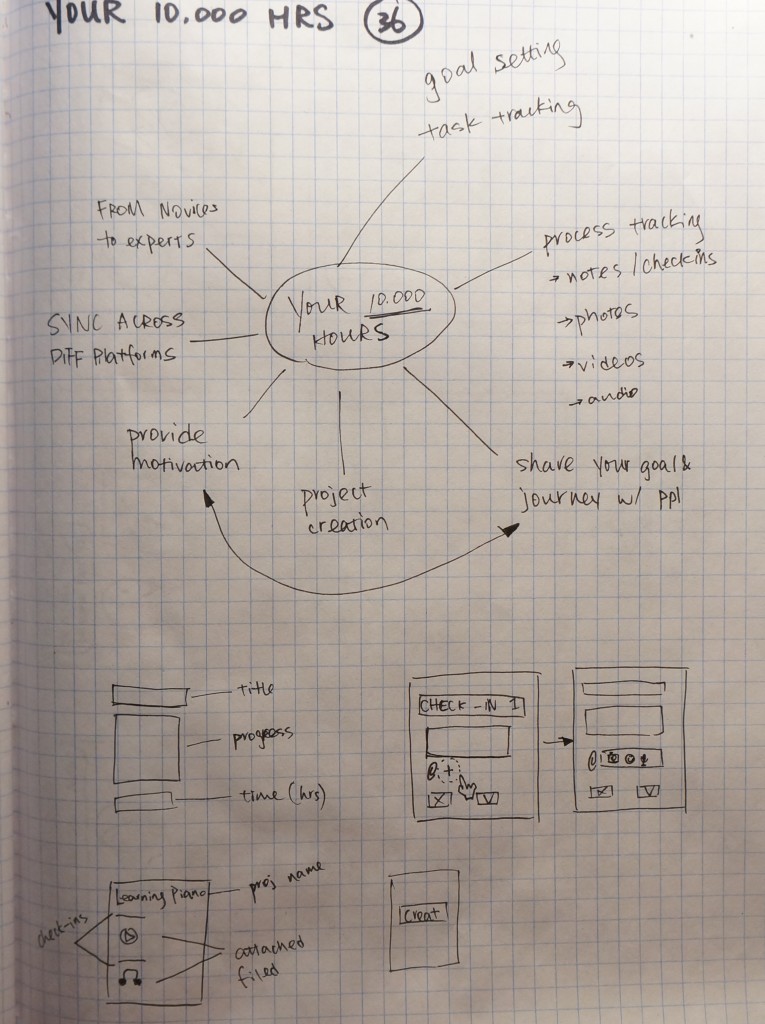 YOUR 10.000 HRS 36
goal setting
task tracking
FROM NOVICES
to experts
process tracking
→ notes/checkins
→ photos
→ videos
→ audio
YOUR 10.000
HOURS
SYNC ACROSS
DIFF Platforms
provide
motivation
project
creation
share your goal &
journey w/ ppl
title
progress
time (hrs)
CHECK-IN 1
+
Learning Piano
proj name
check-ins
attached
filed
Creat